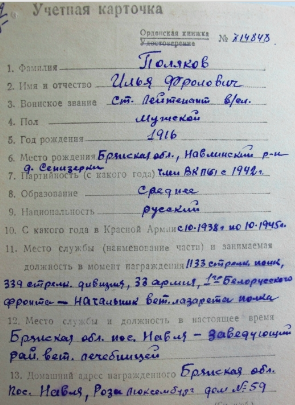 Учетная карточка
Орденская книжка
Удостоверение № Х148478
1. Фамилия Поляков
2. Имя и отчество Илья Фролович
3. Воинское звание Ст. Лейтенант в/сл.
4. Пол мужской
5. Год рождения 1916
6. Место рождения Брянская обл., Навлинский р-н
д. Сенизерки
7. Партийность (с какого года) член ВКП(б) с 1942 г.
8. Образование среднее
9. Национальность русский
10. С какого года в Красной Армии с 10-1938 г по 10-1945 г
11. Место службы (наименование части) и занимаемая
должность в момент награждения 1133 стрелк. полк,
339 стрелк. дивизия, 33 армия, 1го Белорусского
фронта – Начальник вет. лазарета полка
12. Место службы и должность в настоящее время
Брянская обл. пос. Навля – заведующий
рай. вет. лечебницей
13. Домашний адрес награжденного Брянская обл.
пос. Навля, Розы Люксембург дом № 59